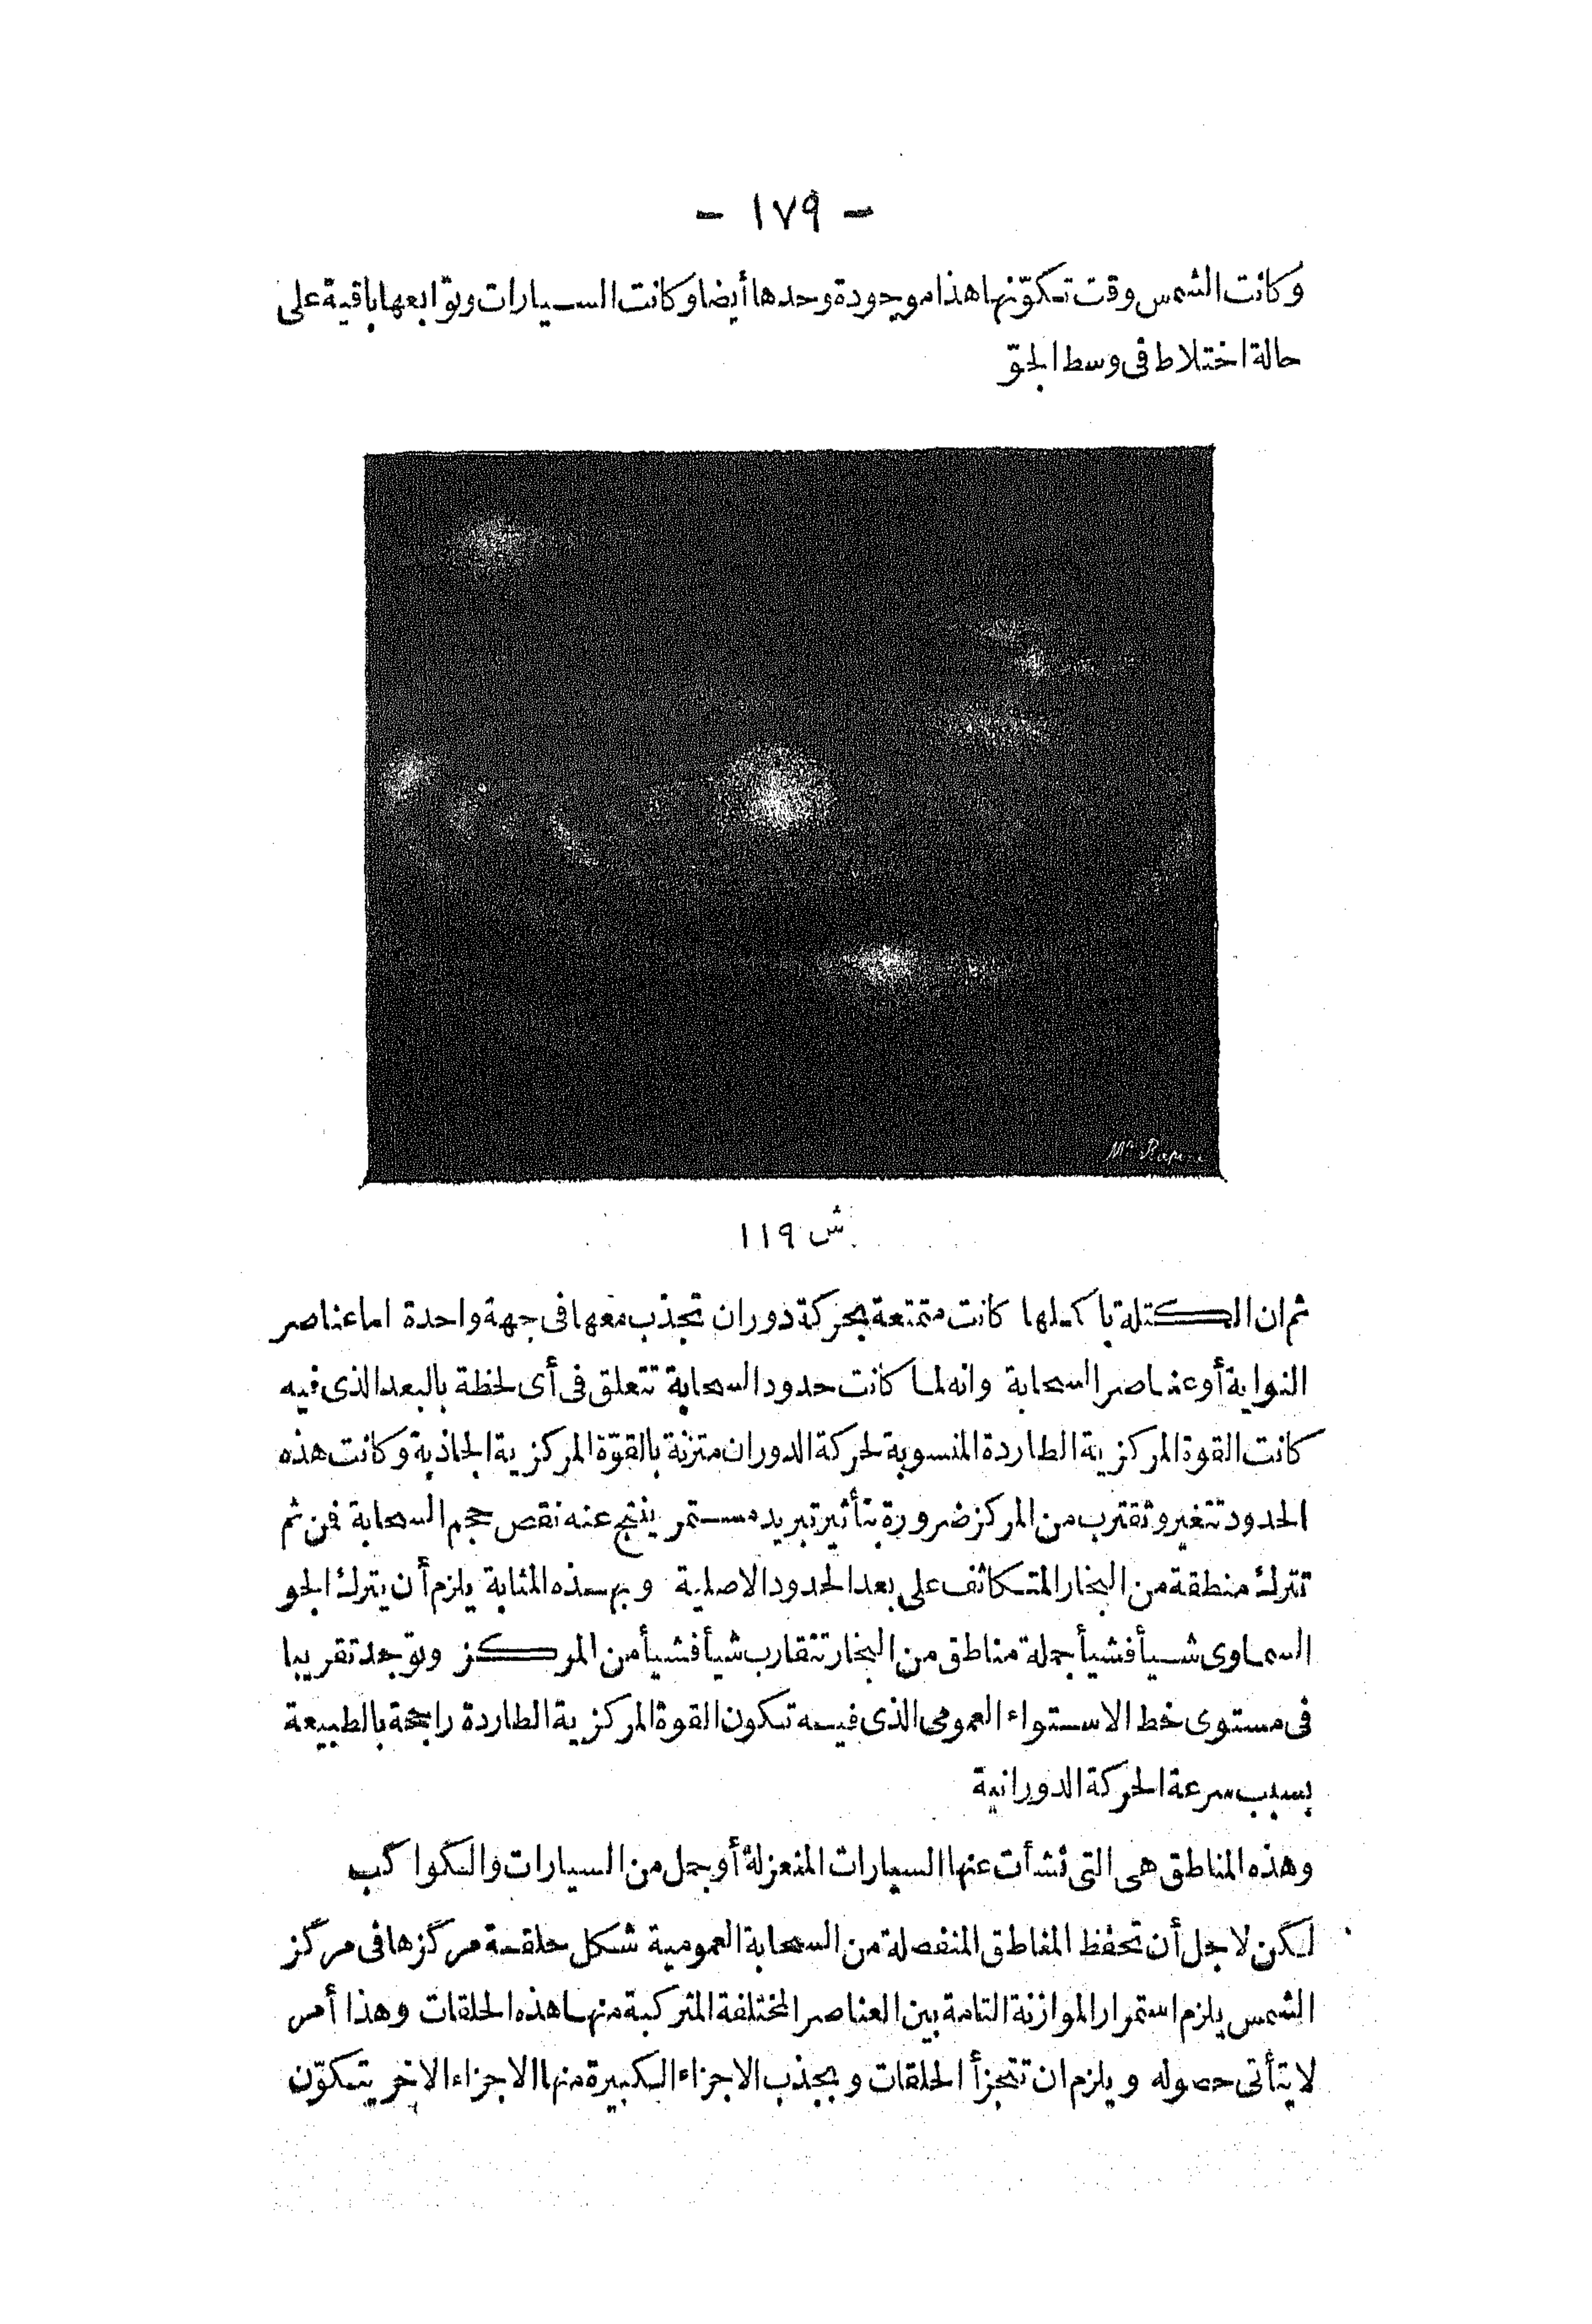 - ١٧٩ -
وكانت الشمس وقت تكوّنها هذا موجودة وحدها أيضا وكانت السيارات وتوابعها باقية على
حالة اختلاط فى وسط الجوّ
ش ١١٩
ثم ان الكتلة باكملها كانت متمتعة بحركة دوران تجذب معها فى جهة واحدة اما عناصر
النواية أو عناصر السحابة وانه لما كانت حدود السحابة تتعلق فى أى لحظة بالبعد الذى فيه
كانت القوة المركزية الطاردة المنسوبة لحركة الدوران متزنة بالقوّة المركزية الجاذبة وكانت هذه
الحدود تتغير وتقترب من المركز ضرورة بتأثير تبريد مستمر ينتج عنه نقص حجم السحابة فمن ثم
تترك منطقة من البخار المتكاثف على بعد الحدود الاصلية وبهذه المثابة يلزم أن يترك الجو
السماوى شيأ فشيأ جملة مناطق من البخار تتقارب شيأ فشيأ من المركز وتوجد تقريبا
فى مستوى خط الاستواء العمومى الذى فيه تكون القوة المركزية الطاردة راجحة بالطبيعة
بسبب سرعة الحركة الدورانية
وهذه المناطق هى التى نشأت عنها السيارات المنعزلة أو جمل من السيارات والكواكب
لكن لاجل أن تحفظ المناطق المنفصلة من السحابة العمومية شكل حلقة مركزها فى مركز
الشمس يلزم استمرار الموازنة التامة بين العناصر المختلفة المتركبة منها هذه الحلقات وهذا أمر
لا يتأتى حصوله ويلزم ان تتجزأ الحلقات وبجذب الاجزاء الكبيرة منها الاجزاء الاخر يتكوّن